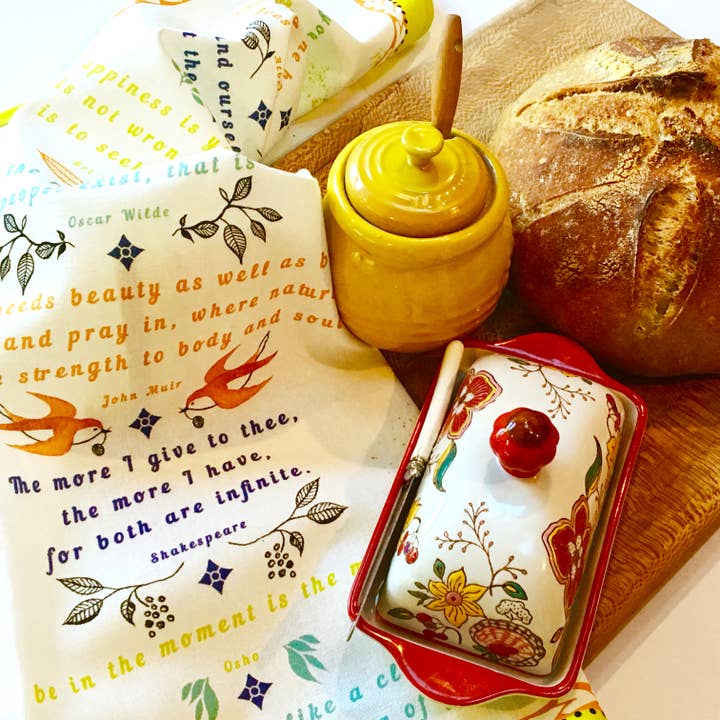 you
and ourself
the
appiness is y
is not wron
is to seek
exist, that is
Oscar Wilde
needs beauty as well as b
and pray in, where natur
strength to body and soul
John Muir
The more I give to thee,
the more I have,
for both are infinite.
Shakespeare
be in the moment is the m
Osho
like a cl
of